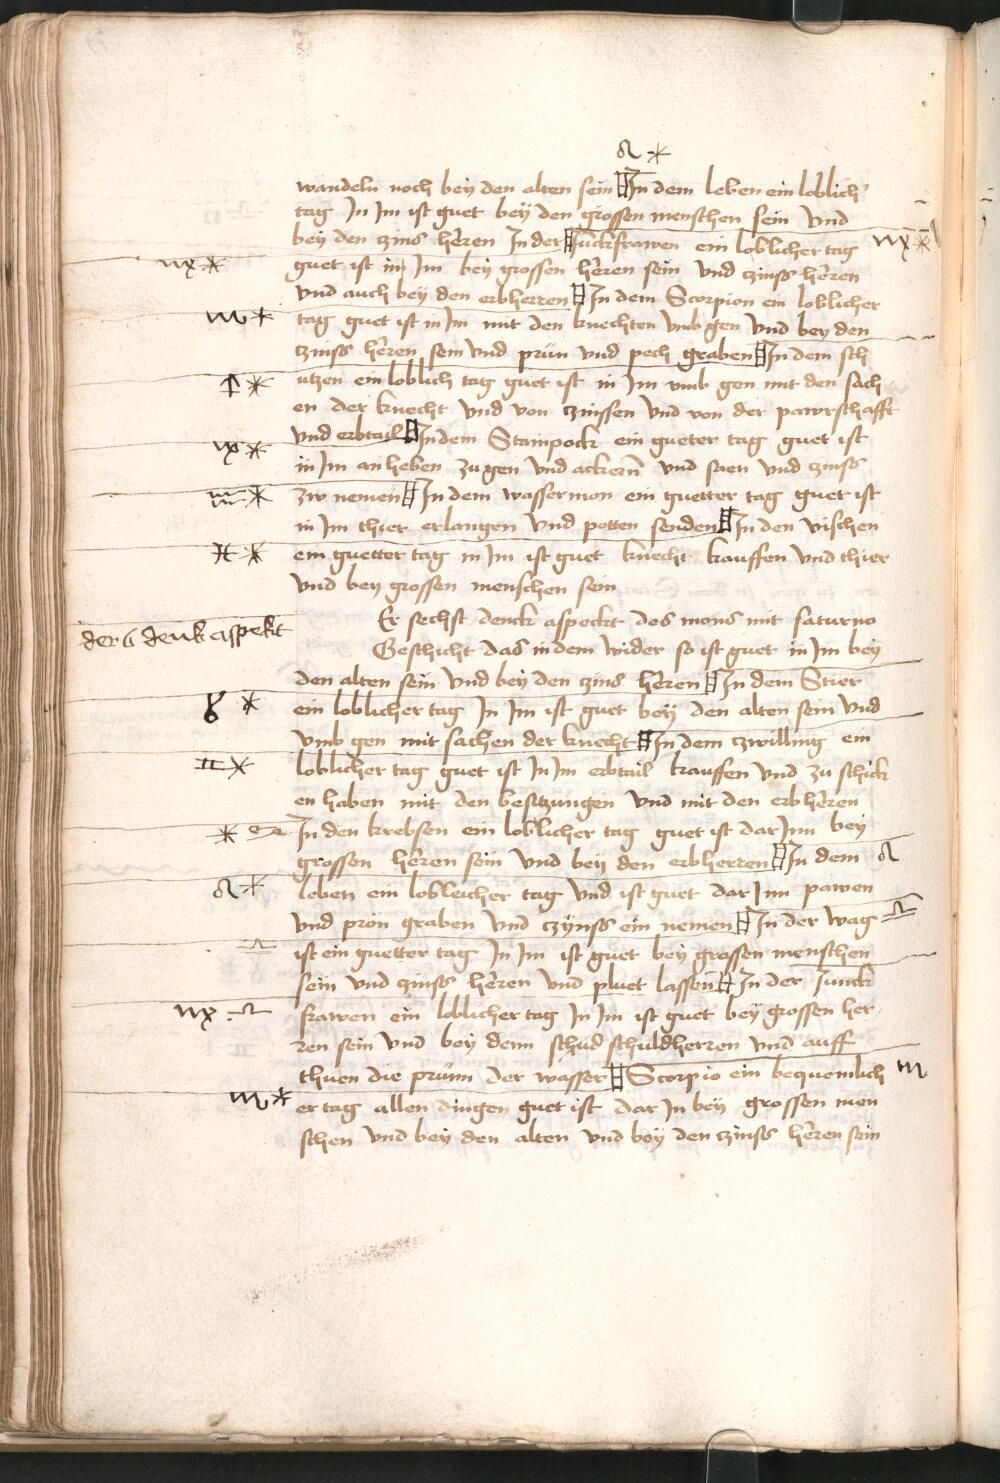 ♌ ⚹
wandeln noch bey den alten sein In dem leben ein loblich
tag In Im ist guet bey den grossen menschen sein Vnd
bey den czins herren In der Junckfrawen ein loblicher tag ♍ ⚹
♍ ⚹ guet ist in Im bey grossen herren sein vnd czinss herren
vnd auch bey den erbherren In dem Scorpion ein loblicher
♏ ⚹ tag guet ist in Im mit den knechten vmb gen Vnd bey den
czinss herren sein Vnd prün vnd pech graben In dem sch
♐ ⚹ utzen ein loblich tag guet ist in Im vmb gen mit den sach
en der knecht vnd von czinssen vnd von der pawrschafft
vnd erbtail In dem Stainpock ein gueter tag guet ist
♑ ⚹ in Im an heben zu gen vnd ackern vnd saen vnd czinss
♒ ⚹ zw nemen In dem wasserman ein guetter tag guet ist
in Im thier erlangen Vnd potten senden In den vischen
♓ ⚹ ein guetter tag in Im ist guet knecht kauffen Vnd thier
vnd bey grossen menschen sein
Er sechst denck aspeckt des mons mit saturno
der 6 denk aspekt
Geschicht das in dem wider so ist guet in Im bey
den alten sein Vnd bey den czins herren In dem Stier
♉ ⚹ ein loblicher tag In Im ist guet bey den alten sein Vnd
Vmb gen mit sachen der knecht In dem czwilling ein
♊ ⚹ loblicher tag guet ist In Im erbtail kauffen Vnd zu schick
en haben mit den besitzungen Vnd mit den erbherren
⚹ ♋ In den krebsen ein loblicher tag guet ist dar Inn bey
grossen herren sein Vnd bey den erbherren In dem ♌
♌ ⚹ leben ein lobleicher tag Vnd ist guet dar Inn pawen
Vnd pron graben Vnd czynss ein nemen In der wag ♎
♎ ist ein guetter tag In Im ist guet bey grossen menschen
sein Vnd czinss herren Vnd pluet lassen In der Junck
♍ ♎ frawen ein loblicher tag In Im ist guet bey grossen her
ren sein Vnd bey denn schud schuldherren Vnd auff
thuen die prünn der wasser Scorpio ein bequemlich ♏
♏ ⚹ er tag allen dingen guet ist dar In bey grossen men
schen Vnd bey den alten Vnd bey den czinss herren sein